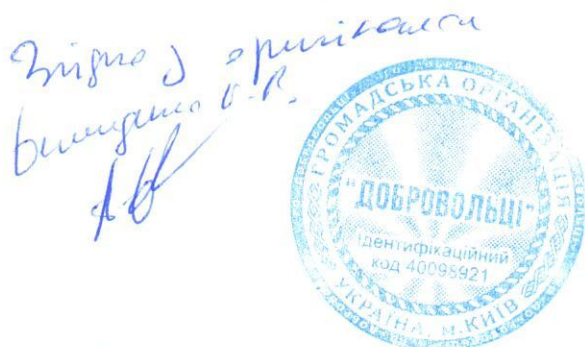 Згідно з оригіналом
ГРОМАДСЬКА ОРГАНІЗАЦІЯ
"ДОБРОВОЛЬЦІ"
Ідентифікаційний
код 40098921
УКРАЇНА, м.КИЇВ